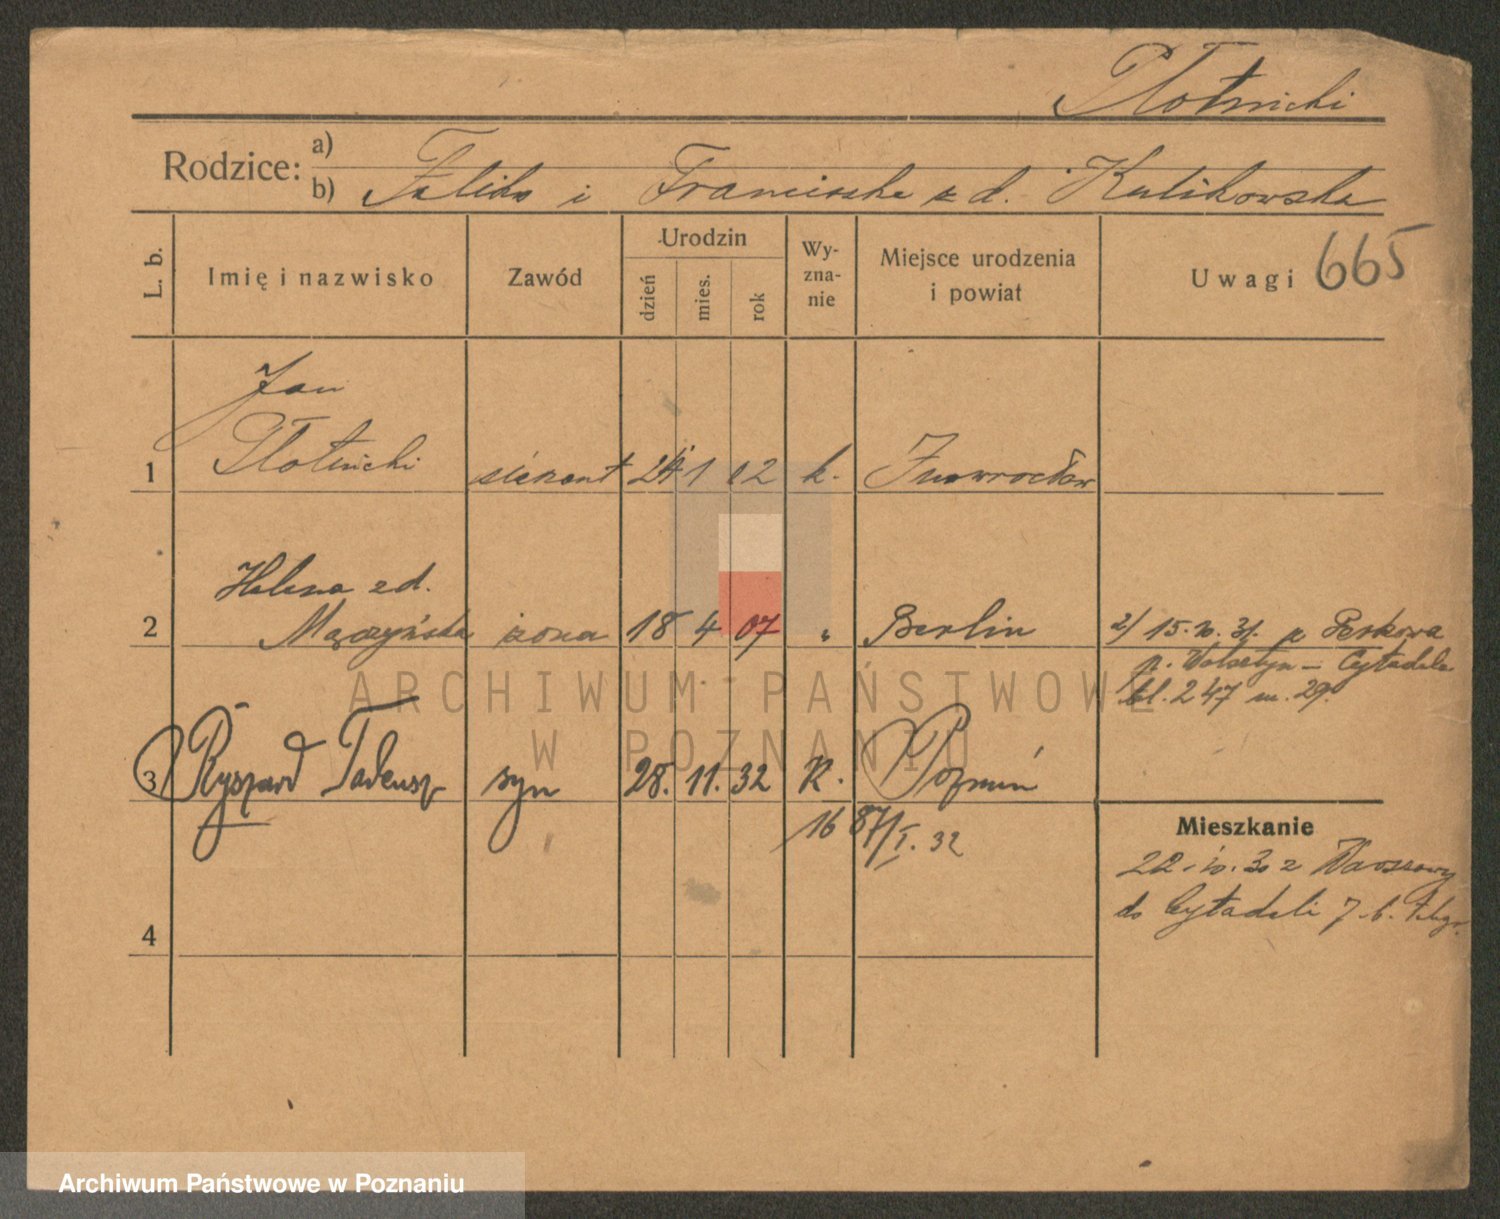 Płotnicki
Rodzice: a)
b) Feliks i Franciszka z d. Kulikowska
L. b. Imię i nazwisko Zawód Urodzin dzień mies. rok Wy-zna-nie Miejsce urodzenia i powiat Uwagi 665
Jan
1 Płotnicki sierżant 24 1 02 k. Inowrocław
Helena z d.
2 Mączyńska żona 18 4 07 " Berlin 2/ 15.10.31. z
p. Wolsztyn - Cytadela
bl. 247 m. 29.
3 Ryszard Tadeusz syn 28. 11. 32 K. Poznań
16 87/I. 32
Mieszkanie
22.10.30 z Warszawy
4 do Cytadeli 7. b.
ARCHIWUM PAŃSTWOWE
W POZNANIU
Archiwum Państwowe w Poznaniu